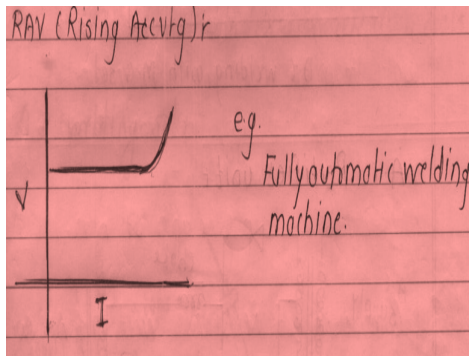 RAV (Rising Arc Vtg)r
V
I
e.g.
Fully automatic welding
machine.